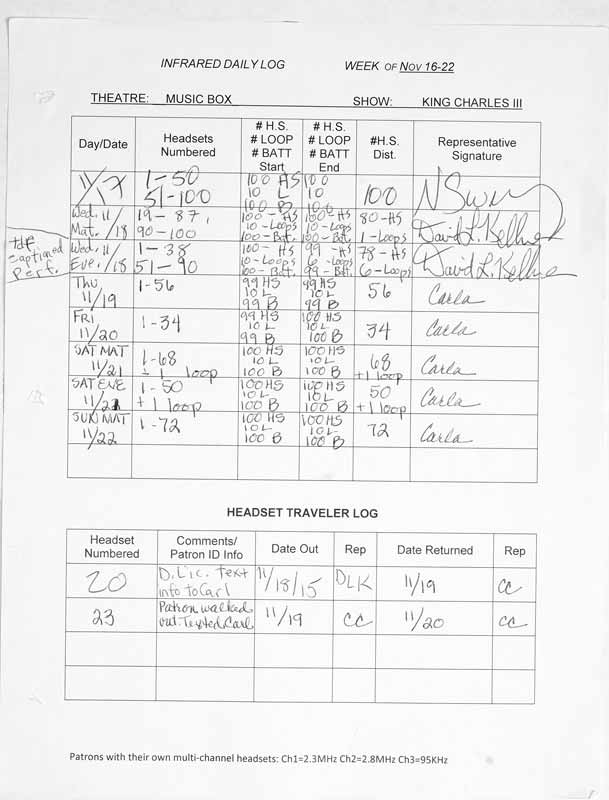 INFRARED DAILY LOG WEEK OF NOV 16-22
THEATRE: MUSIC BOX SHOW: KING CHARLES III
Day/Date Headsets Numbered # H.S. # LOOP # BATT Start # H.S. # LOOP # BATT End #H.S. Dist. Representative Signature
11/17 1-50 51-100 100 HS 10 L 100 B 100 10 100 100
Wed. 11/18 Mat. 19-87, 90-100 100-HS 10-Loops 100-Bat. 100-HS 10-Loops 100-Bat. 80-HS 1-Loops David L. Kellner
tdf captioned Perf.
Wed. 11/18 Eve. 1-38 51-90 100-HS 10-Loops 100-Bat. 99-HS 6-Loops 99-Bat. 78-HS 6-Loops David L. Kellner
THU 11/19 1-56 99 HS 10 L 99 B 99 HS 10 L 99 B 56 Carla
FRI 11/20 1-34 99 HS 10 L 99 B 100 HS 10 L 100 B 34 Carla
SAT MAT 11/21 1-68 + 1 loop 100 HS 10 L 100 B 100 HS 10 L 100 B 68 +1 loop Carla
SAT EVE 11/21 1-50 + 1 loop 100 HS 10 L 100 B 100 HS 10 L 100 B 50 +1 loop Carla
SUN MAT 11/22 1-72 100 HS 10 L 100 B 100 HS 10 L 100 B 72 Carla
HEADSET TRAVELER LOG
Headset Numbered Comments/ Patron ID Info Date Out Rep Date Returned Rep
20 D. Lic. text info to Carl 11/18/15 DLK 11/19 CC
23 Patron walked out Texted Carl 11/19 CC 11/20 CC
Patrons with their own multi-channel headsets: Ch1=2.3MHz Ch2=2.8MHz Ch3=95KHz